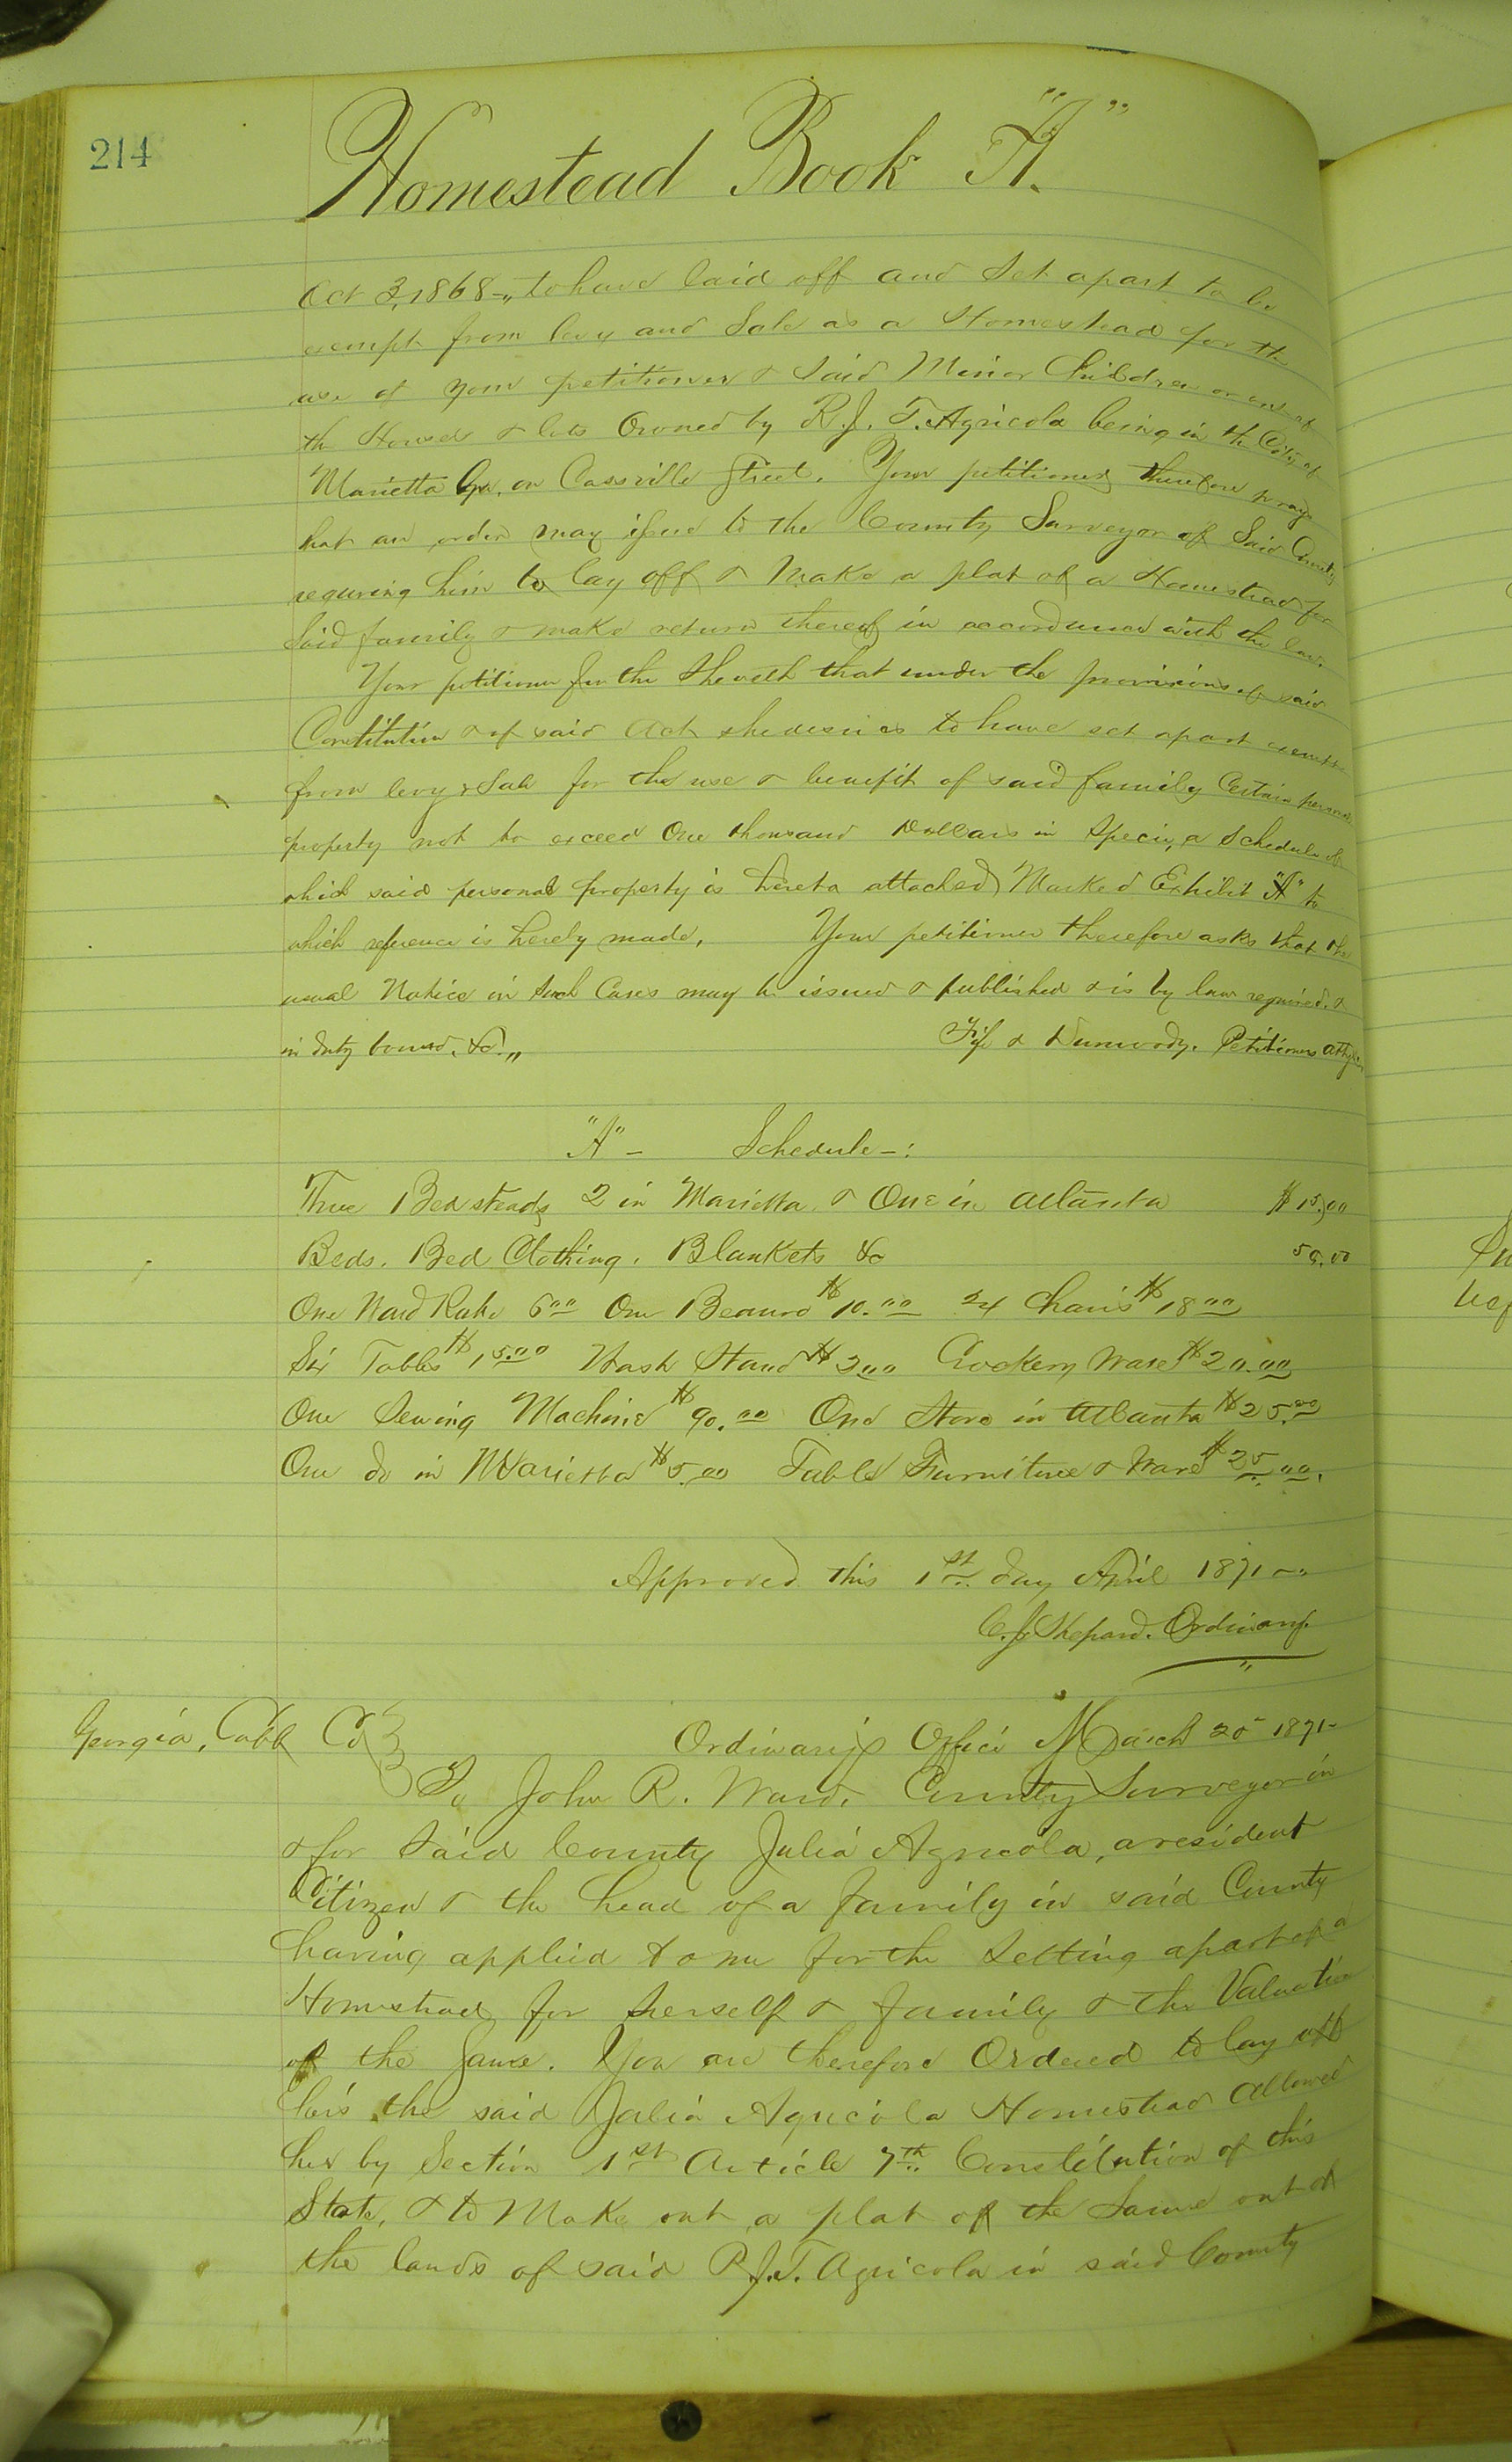 214
Homestead Book "A".
Oct 3, 1868 -,, to have laid off and Set apart to be
exempt from levy and Sale as a Homestead for the
use of your petitioner & Said Minor Children or one of
the Houses & lots Owned by R. J. T. Agricola being in the City of
Marietta Ga. on Cassville Street. Your petitioner therefore prays
that an order may issue to the County Surveyor of Said County
requring him to lay off & Make a plat of a Homestead for
Said family & make return thereof in accordance with the law.
Your petitioner further Sheweth that under the provisions of said
Constitution & of said Act she desires to have set apart exempt
from levy & Sale for the use & benefit of said family Certain personal
property not to exceed One thousand Dollars in Specie, a Schedule of
which said personal property is hereto attached Marked Exhibit "A" to
which reference is hereby made, Your petitioner therefore asks that the
usual Notice in Such Cases may be issued & published & is by law required. &
in duty bound. &c. ,, & Dunwody. Petitioners Attys.
"A" - Schedule -:
Three Bedsteads 2 in Marietta & One in Atlanta $15.00
Beds. Bed Clothing. Blankets &c 50.00
One Ward Robe 6 00 One Beauro $10.00 24 Chairs $18 00
Six Tables $15.00 Wash Stand $3 00 Crockery Ware $20.00
One Sewing Machine $90.00 One Stove in Atlanta $25.00
One do in Marietta $5.00 Table Furniture & Ware $25.00.
Approved this 1st day April 1871 -,,
C. J. Shepard. Ordinary.
Georgia, Cobb Co Ordinary's Office March 20 1871-
To John R. Ward. County Surveyor in
& for Said County Julia Agricola, a resident
Citizen & the head of a family in said County
having applied to me for the Setting apart of a
Homestead for herself & family & the Valuation
of the Same. You are therefore Ordered to lay off
the said Julia Agricola Homestead allowed
her by Section 1st Article 7th Constitution of this
State, & to Make out a plat of the Same out of
the lands of said R. J. T. Agricola in said County